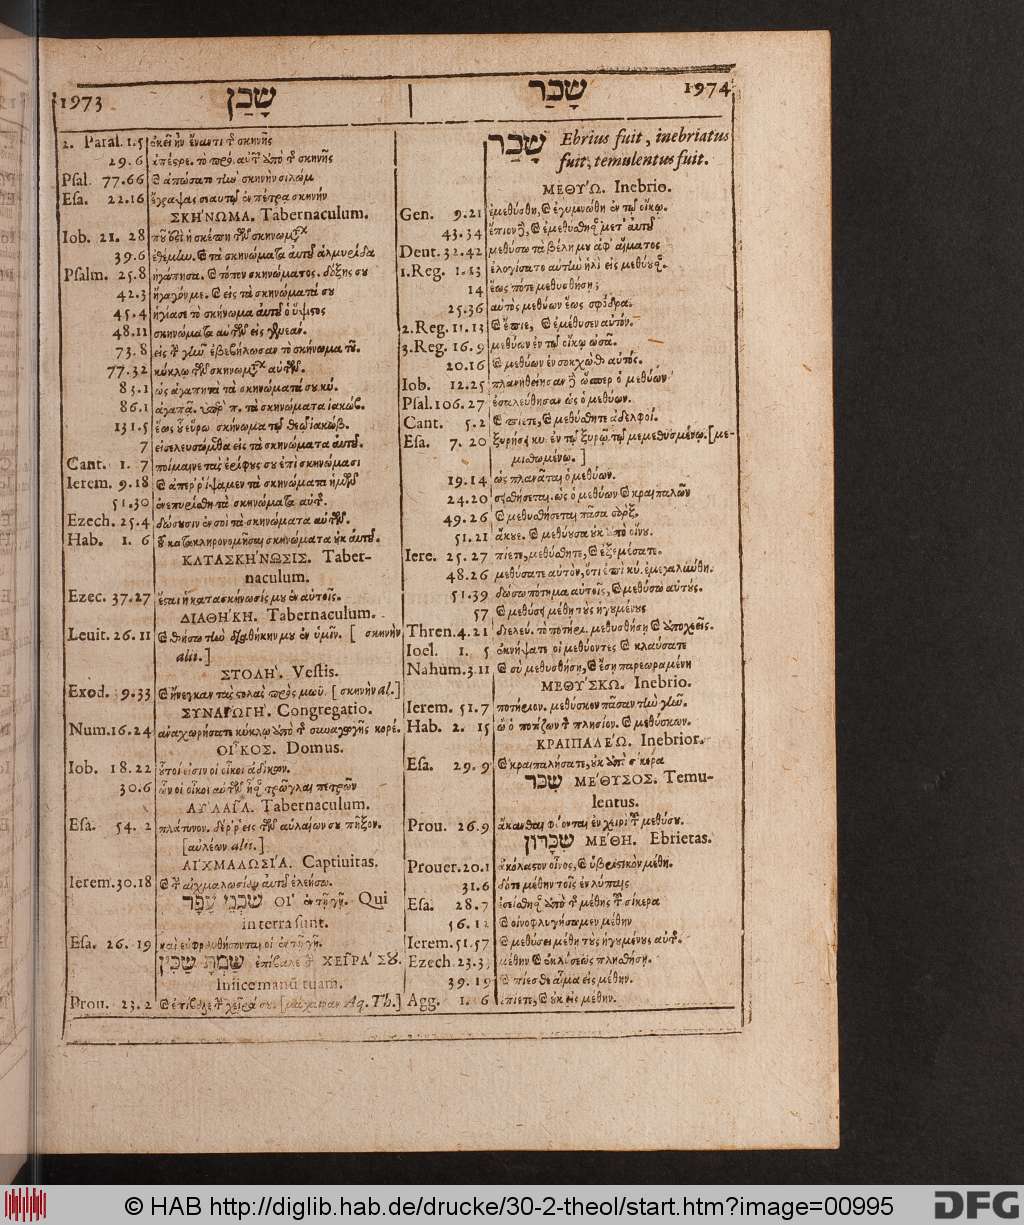 1973 שָׁכַן | שָׁכַר 1974
2. Paral. 1.5 ἐκεῖ ἦν ἔναντι τ῀ σκηνῆς
29.6 ἀπέςρε. τὸ πρό. αὐτ῀ ὑπὸ τ῀ σκηνῆς
Psal. 77.66 Ϗ ἀπώσατο τὴν σκηνὴν σιλώμ
Esa. 22.16 ἔγραψας σεαυτῷ ἐν πέτρα σκηνήν
ΣΚΉΝΩΜΑ. Tabernaculum.
Iob. 21. 28 ἡ σκέπη τῶν σκηνωμ.
39.6 ἐθέμην. Ϗ τὰ σκηνώματα αὐτοῦ ἁλμυρίδα
Psalm. 25.8 ἠγάπησα. Ϗ τόπον σκηνώματος. δόξης σου
42.3 ἤγαγόν με. Ϗ εἰς τὰ σκηνώματά σου
45.4 ἡγίασε τὸ σκήνωμα αὐτοῦ ὁ ὕψιςος
48.11 σκηνώματα αὐτῶν εἰς γενεάν.
73.8 εἰς τ῀ γῆν ἐβεβήλωσαν τὸ σκήνωμα τοῦ.
77.32 κύκλῳ τῶν σκηνωμ. αὐτῶν.
83.1 ὡς ἀγαπητὰ τὰ σκηνώματά σου κύ.
86.1 ἀγαπᾷ. ὑπὲρ π. τὰ σκηνώματα ἰακώβ.
131.5 ἕως οὗ εὕρω σκήνωμα τῷ θεῷ ἰακώβ.
7 εἰσελευσώμεθα εἰς τὰ σκηνώματα αὐτοῦ.
Cant. 1. 7 ποίμαινε τὰς ἐρίφους σου ἐπὶ σκηνώμασι
Ierem. 9.18 Ϗ ἀπερρίψαμεν τὰ σκηνώματα ἡμῶν
51.30 ἐνεπυρίσθη τὰ σκηνώματα αὐτ῀.
Ezech. 25.4 δώσουσιν ἐν σοὶ τὰ σκηνώματα αὐτῶν.
Hab. 1. 6 τοῦ κατακληρονομῆσαι σκηνώματα οὐκ αὐτοῦ.
ΚΑΤΑΣΚΉΝΩΣΙΣ. Taber-
naculum.
Ezec. 37.27 ἔςαι ἡ κατασκήνωσίς μου ἐν αὐτοῖς.
ΔΙΑΘΉΚΗ. Tabernaculum.
Leuit. 26. 11 Ϗ θήσω τὴν διαθήκην μου ἐν ὑμῖν. [ σκηνὴν
alii.]
ΣΤΟΛΉ. Vestis.
Exod. 9.33 Ϗ ἤνεγκαν τὰς ςολὰς πρὸς μωϋ. [ σκηνὴν al.]
ΣΥΝΑΓΩΓΉ. Congregatio.
Num. 16.24 ἀναχωρήσατε κύκλῳ ὑπὸ τ῀ συναγωγῆς κορέ.
ΟΙ͂ΚΟΣ. Domus.
Iob. 18.22 οὗτοί εἰσιν οἱ οἶκοι ἀδίκων.
30.6 ὧν οἱ οἶκοι αὐτῶν ἦσαν τρῶγλαι πετρῶν
ΑΥ̓ΛΑΓΑ. Tabernaculum.
Esa. 54. 2 πλάτυνον. δέρρεις τῶν αὐλαίων σου πῆξον.
[αὐλέων alii.]
ΑἸΧΜΑΛΩΣΊΑ. Captiuitas.
Ierem. 30.18 Ϗ τ῀ αἰχμαλωσίαν αὐτοῦ ἐλεήσω.
שֹׁכְנֵי עָפָר ΟἹ ἐν τῇ γῇ. Qui
in terra sunt.
Esa. 26. 19 καὶ εὐφρανθήσονται οἱ ἐν τῇ γῇ.
שַׂמְתָּ שַׂכִּין ἐπίβαλε τ῀ ΧΕΙ͂ΡΆ ΣΟΥ.
Iniice manũ tuam.
Prou. 23.2 Ϗ ἐπίβαλε τ῀ χεῖρά σου. [μάχαιραν Aq. Th.]
שָׁכַר Ebrius fuit, inebriatus
fuit, temulentus fuit.
ΜΕΘΎΩ. Inebrio.
Gen. 9.21 ἐμεθύσθη, Ϗ ἐγυμνώθη ἐν τῷ οἴκῳ.
43.34 ἔπιον, Ϗ ἐμεθύσθησαν μετ' αὐτοῦ
Deut. 32.42 μεθύσω τὰ βέλη μου ἀφ' αἵματος
1.Reg. 1.13 ἐλογίσατο αὐτὴν ἡλὶ εἰς μεθύους.
14 ἕως πότε μεθυσθήσῃ;
25.36 αὐτὸς μεθύων ἕως σφόδρα.
2.Reg. 11.13 Ϗ ἔπιε, Ϗ ἐμέθυσεν αὐτόν.
3.Reg. 16.9 μεθύων ἐν τῷ οἴκῳ ὠσᾶ.
20.16 Ϗ μεθύων ἐν σοκχὼθ αὐτός.
Iob. 12.25 πλανηθείησαν ὥσπερ ὁ μεθύων
Psal. 106.27 ἐσαλεύθησαν ὡς ὁ μεθύων.
Cant. 5.2 Ϗ πίετε, Ϗ μεθύσθητε ἀδελφοί.
Esa. 7. 20 ξυρήσει κυ. ἐν τῷ ξυρῷ τῷ μεμεθυσμένῳ. [με-
μισθωμένῳ. ]
19.14 ὡς πλανᾶται ὁ μεθύων.
24.20 σεισθήσεται. ὡς ὁ μεθύων Ϗ κραιπαλῶν
49.26 Ϗ μεθυσθήσεται πᾶσα σάρξ.
51.21 ἄκουε. Ϗ μεθύουσα οὐκ ἀπὸ οἴνου.
Iere. 25. 27 πίετε, μεθύσθητε, Ϗ ἐξεμέσατε.
48.26 μεθύσατε αὐτὸν, ὅτι ἐπὶ κύ. ἐμεγαλύνθη.
51.39 δώσω πότημα αὐτοῖς, Ϗ μεθύσω αὐτούς.
57 Ϗ μεθύσει μέθῃ τοὺς ἡγουμένους
Thren. 4.21 διελεύ. τὸ ποτήρι. μεθυσθήσῃ Ϗ ὑποχεεῖς.
Ioel. 1. 5 ἐκνήψατε οἱ μεθύοντες Ϗ κλαύσατε
Nahum. 3.11 Ϗ σὺ μεθυσθήσῃ, Ϗ ἔσῃ παρεωραμένη
ΜΕΘΎΣΚΩ. Inebrio.
Ierem. 51.7 ποτήριον. μεθύσκον πᾶσαν τὴν γῆν.
Hab. 2. 15 ὢ ὁ ποτίζων τ῀ πλησίον. Ϗ μεθύσκων.
ΚΡΑΙΠΑΛΈΩ. Inebrior.
Esa. 29. 9 Ϗ κραιπαλήσατε, οὐκ ἀπὸ σίκερα
שִׁכֹּר ΜΈΘΥΣΟΣ. Temu-
lentus.
Prou. 26.9 ἄκανθαι φύονται ἐν χειρὶ τ῀ μεθύσου.
שִׁכָּרוֹן ΜΈΘΗ. Ebrietas.
Prouer. 20.1 ἀκόλαςον οἶνος, Ϗ ὑβριςικὸν μέθη.
31.6 δότε μέθην τοῖς ἐν λύπαις
Esa. 28.7 ἐσείσθησαν ὑπὸ τ῀ μέθης τ῀ σίκερα
56.12 Ϗ οἰνοφλυγήσωμεν μέθην
Ierem. 51.57 Ϗ μεθύσει μέθῃ τοὺς ἡγουμένους αὐτ῀.
Ezech. 23.3 μέθην Ϗ ἐκλύσεως πλησθήσῃ.
39.19 Ϗ πίεσθε αἷμα εἰς μέθην.
Agg. 1. 6 ἐπίετε, Ϗ οὐκ εἰς μέθην.
© HAB http://diglib.hab.de/drucke/30-2-theol/start.htm?image=00995 DFG